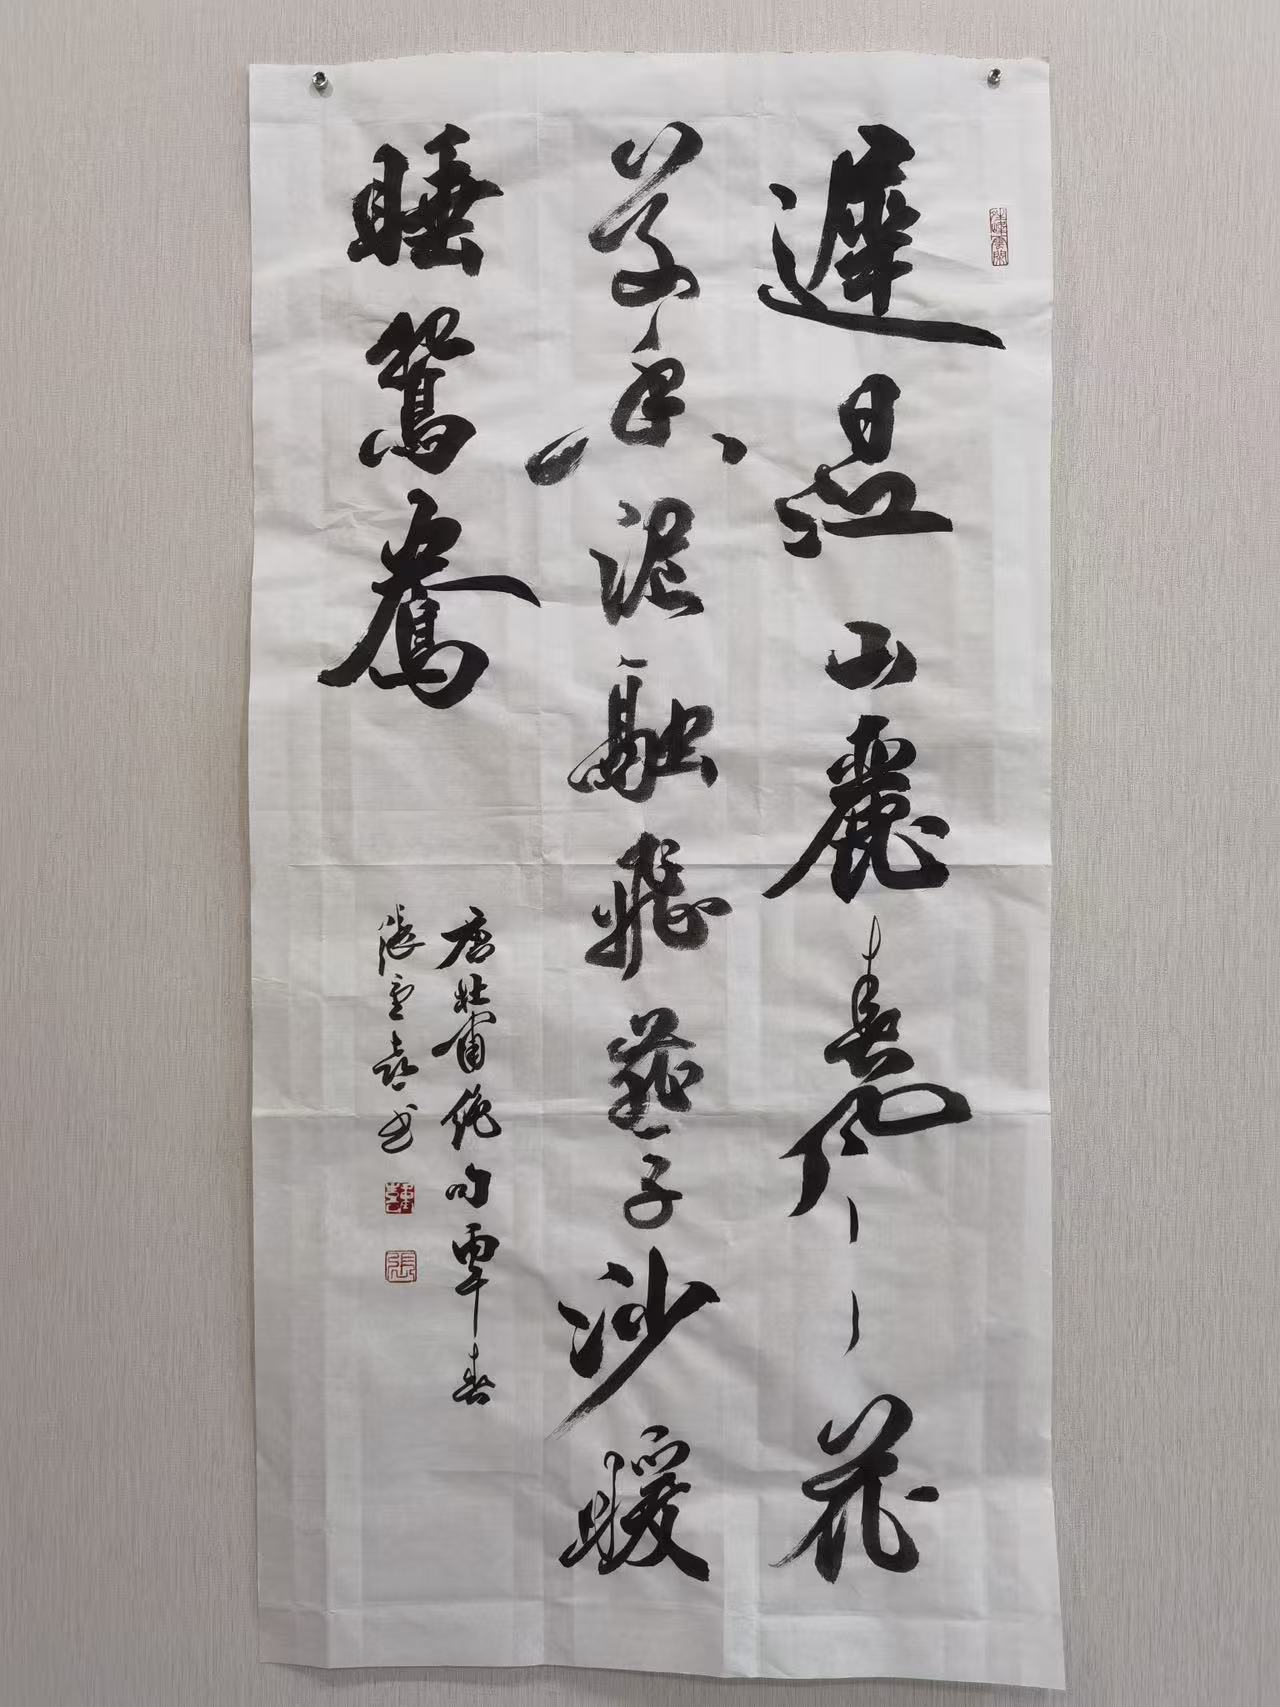 遲日江山麗春風花
草香泥融飛燕子沙暖
睡鴛鴦
唐杜甫絕句 春
張 喜书
張